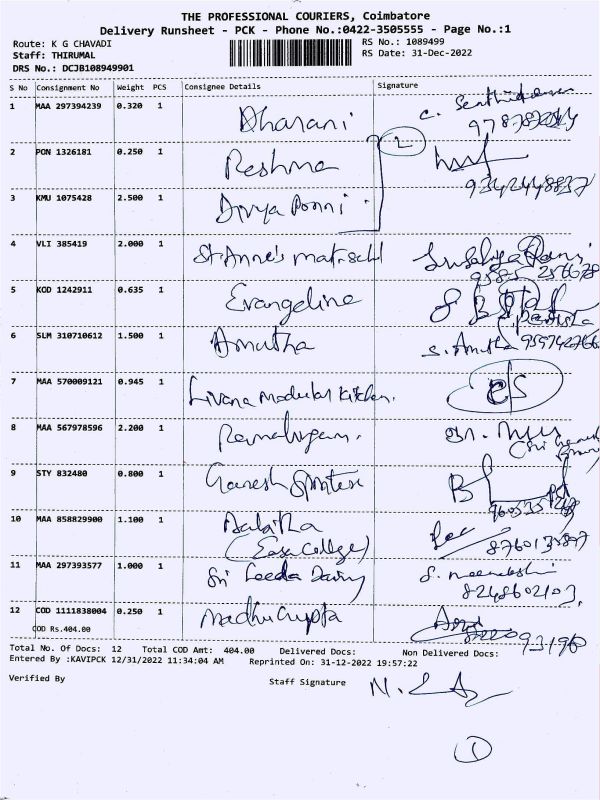 THE PROFESSIONAL COURIERS, Coimbatore
Delivery Runsheet - PCK - Phone No.:0422-3505555 - Page No.:1
Route: K G CHAVADI RS No.: 1089499
Staff: THIRUMAL RS Date: 31-Dec-2022
DRS No.: DCJB108949901
S No Consignment No Weight PCS Consignee Details Signature
1 MAA 297394239 0.320 1 Dharani
2 PON 1326181 0.250 1 Reshma 9342448837
3 KMU 1075428 2.500 1 Divya Ponni
4 VLI 385419 2.000 1 St. Anne's mat. schl
5 KOD 1242911 0.635 1 Evangeline
6 SLM 310710612 1.500 1 Amutha S. Amutha
7 MAA 570009121 0.945 1 Livana Modular Kitchen.
8 MAA 567978596 2.200 1
9 STY 832480 0.800 1 Ganesh
10 MAA 858829900 1.100 1
11 MAA 297393577 1.000 1 Sri 8248602103
12 COD 1111838004 0.250 1 Madhu Gupta
COD Rs.404.00
Total No. Of Docs: 12 Total COD Amt: 404.00 Delivered Docs: Non Delivered Docs:
Entered By :KAVIPCK 12/31/2022 11:34:04 AM Reprinted On: 31-12-2022 19:57:22
Verified By Staff Signature
1